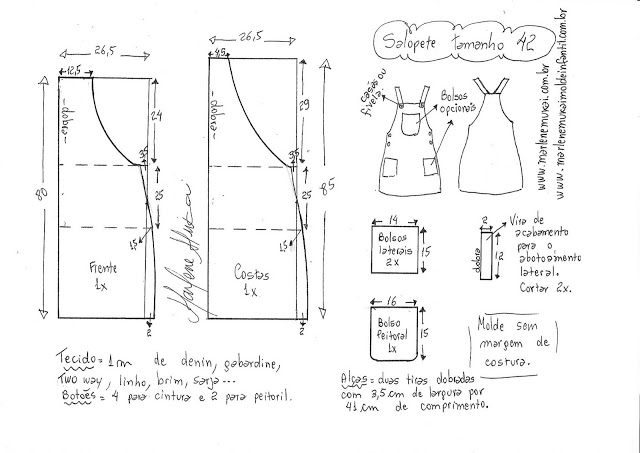 Salopete tamanho 42
26,5
12,5
dobra
24
3,5
25
1,5
80
Frente
1x
2
26,5
4,5
dobra
29
25
1,5
85
Costas
1x
2
Marlene Mukai
casas ou
fivela
Bolsos
opcionais
www.marlenemukai.com.br
www.marlenemukaimoldeinfantil.com.br
14
Bolsos
laterais
2x
15
2
dobra
12
Vira de
acabamento
para o
abotoamento
lateral.
Cortar 2x.
16
Bolso
peitoral
1x
15
Molde sem
margem de
costura.
Tecido = 1m de denin, gabardine,
Two way, linho, brim, sarja...
Botões = 4 para cintura e 2 para peitoril.
Alças = duas tiras dobradas
com 3,5 cm de largura por
41 cm de comprimento.